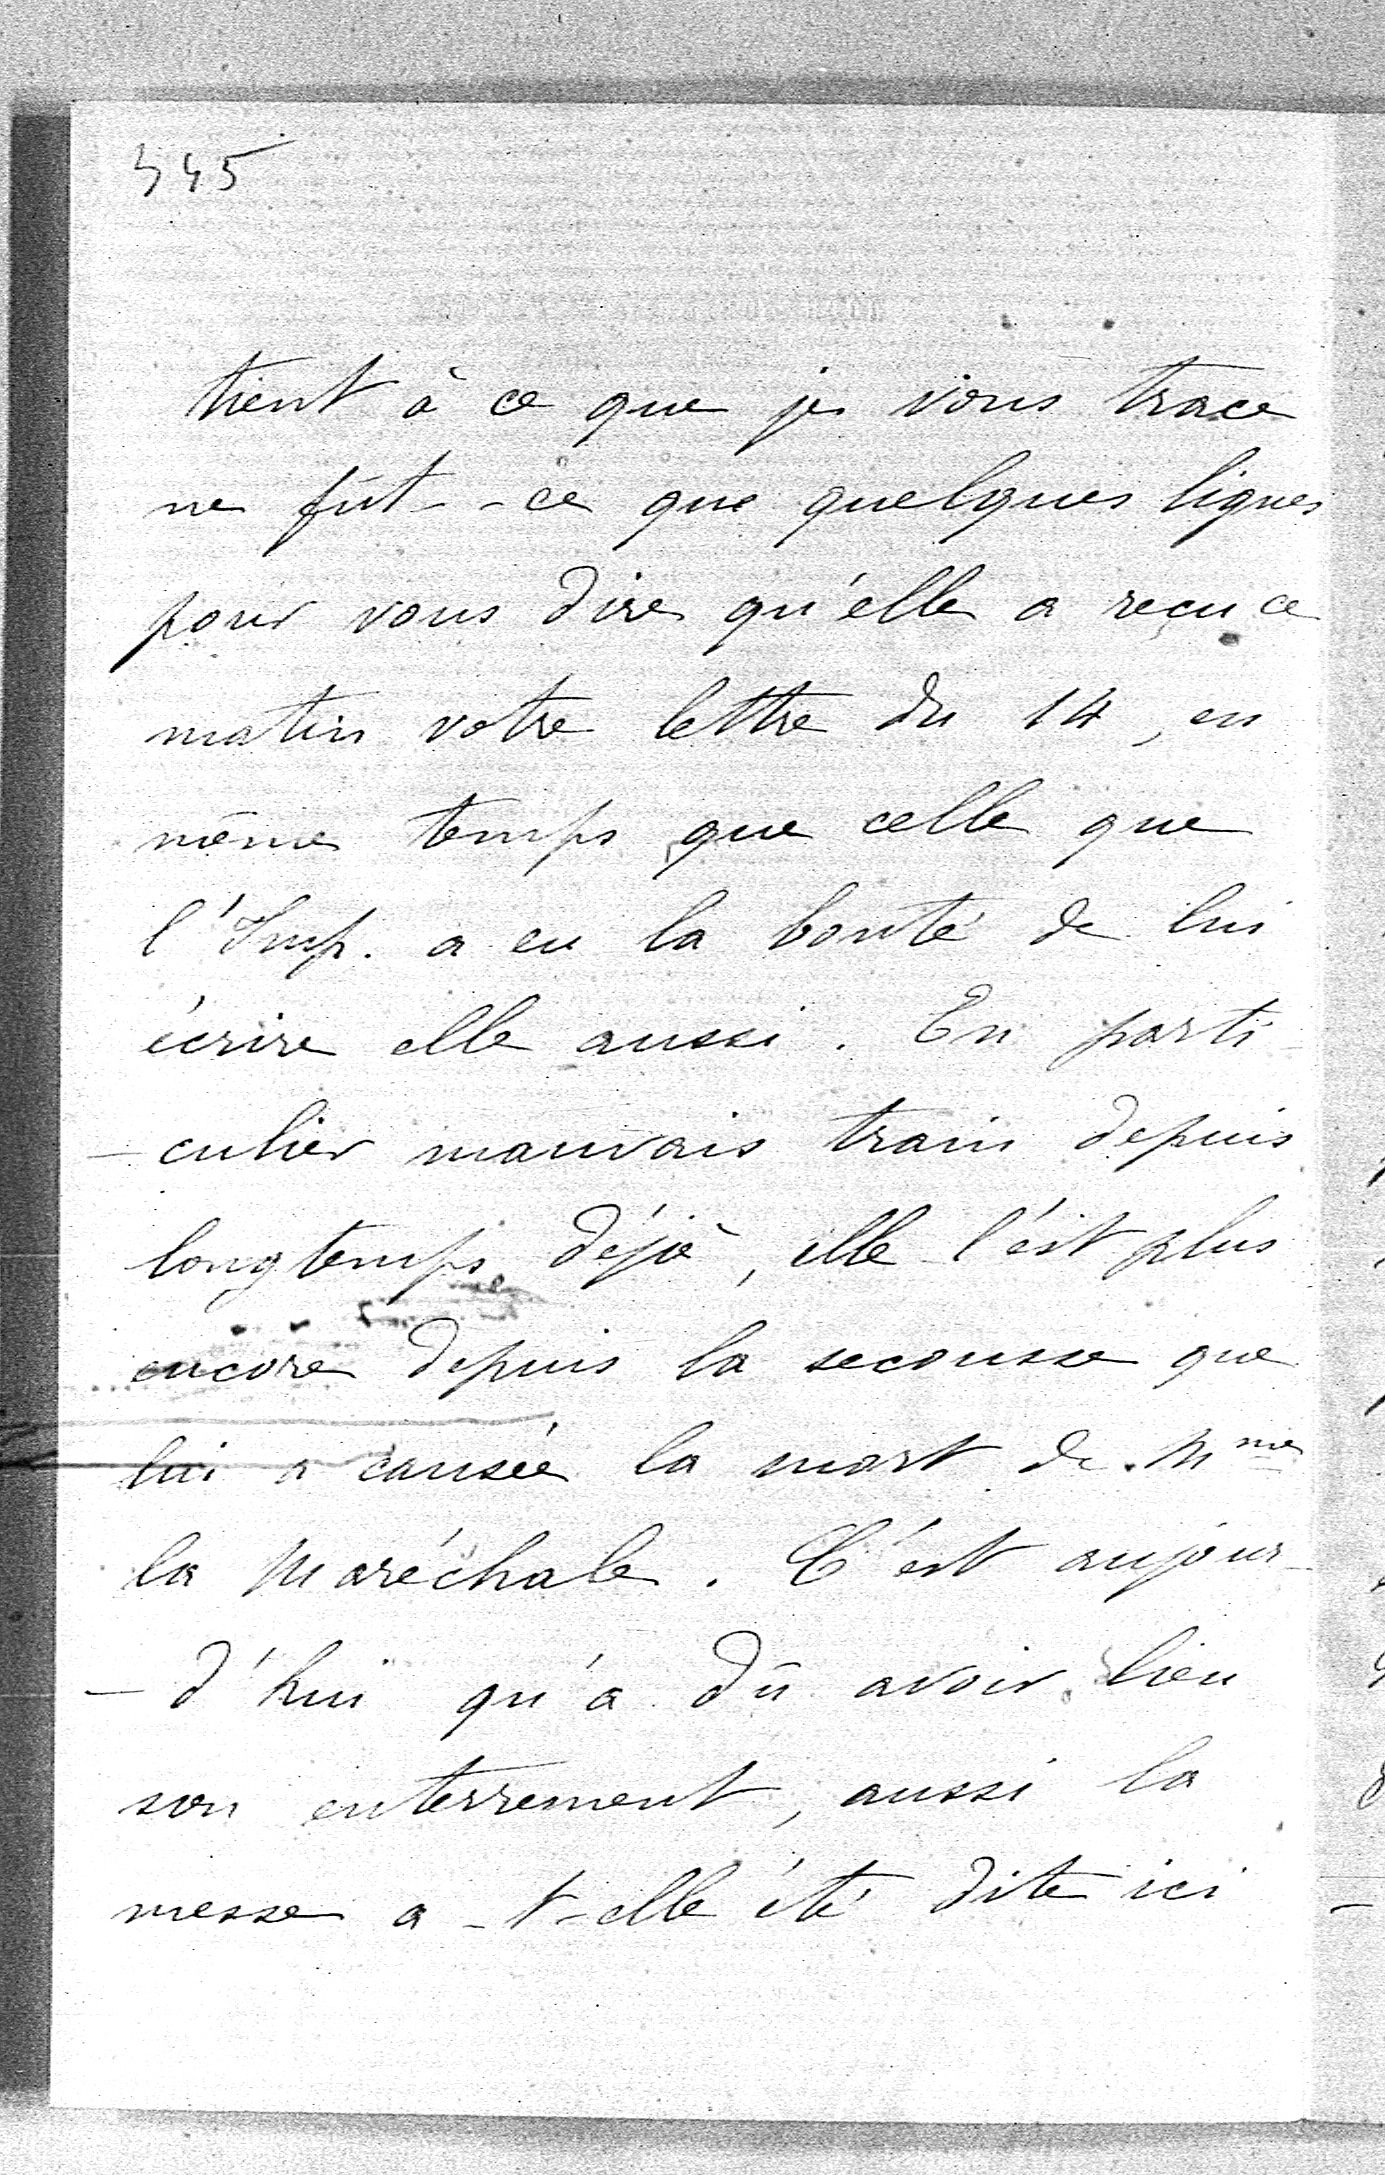 445
tient à ce que je vous trace
ne fût-ce que quelques lignes
pour vous dire qu'elle a reçu ce
matin votre lettre du 14, en
même temps que celle que
l'Imp. a eu la bonté de lui
écrire elle aussi. En parti-
-culier mauvais train depuis
longtemps déjà, elle l'est plus
encore depuis la secousse que
lui a causée la mort de Mme
la Maréchale. C'est aujour-
-d'hui qu'a dû avoir lieu
son enterrement, aussi la
messe a-t-elle été dite ici